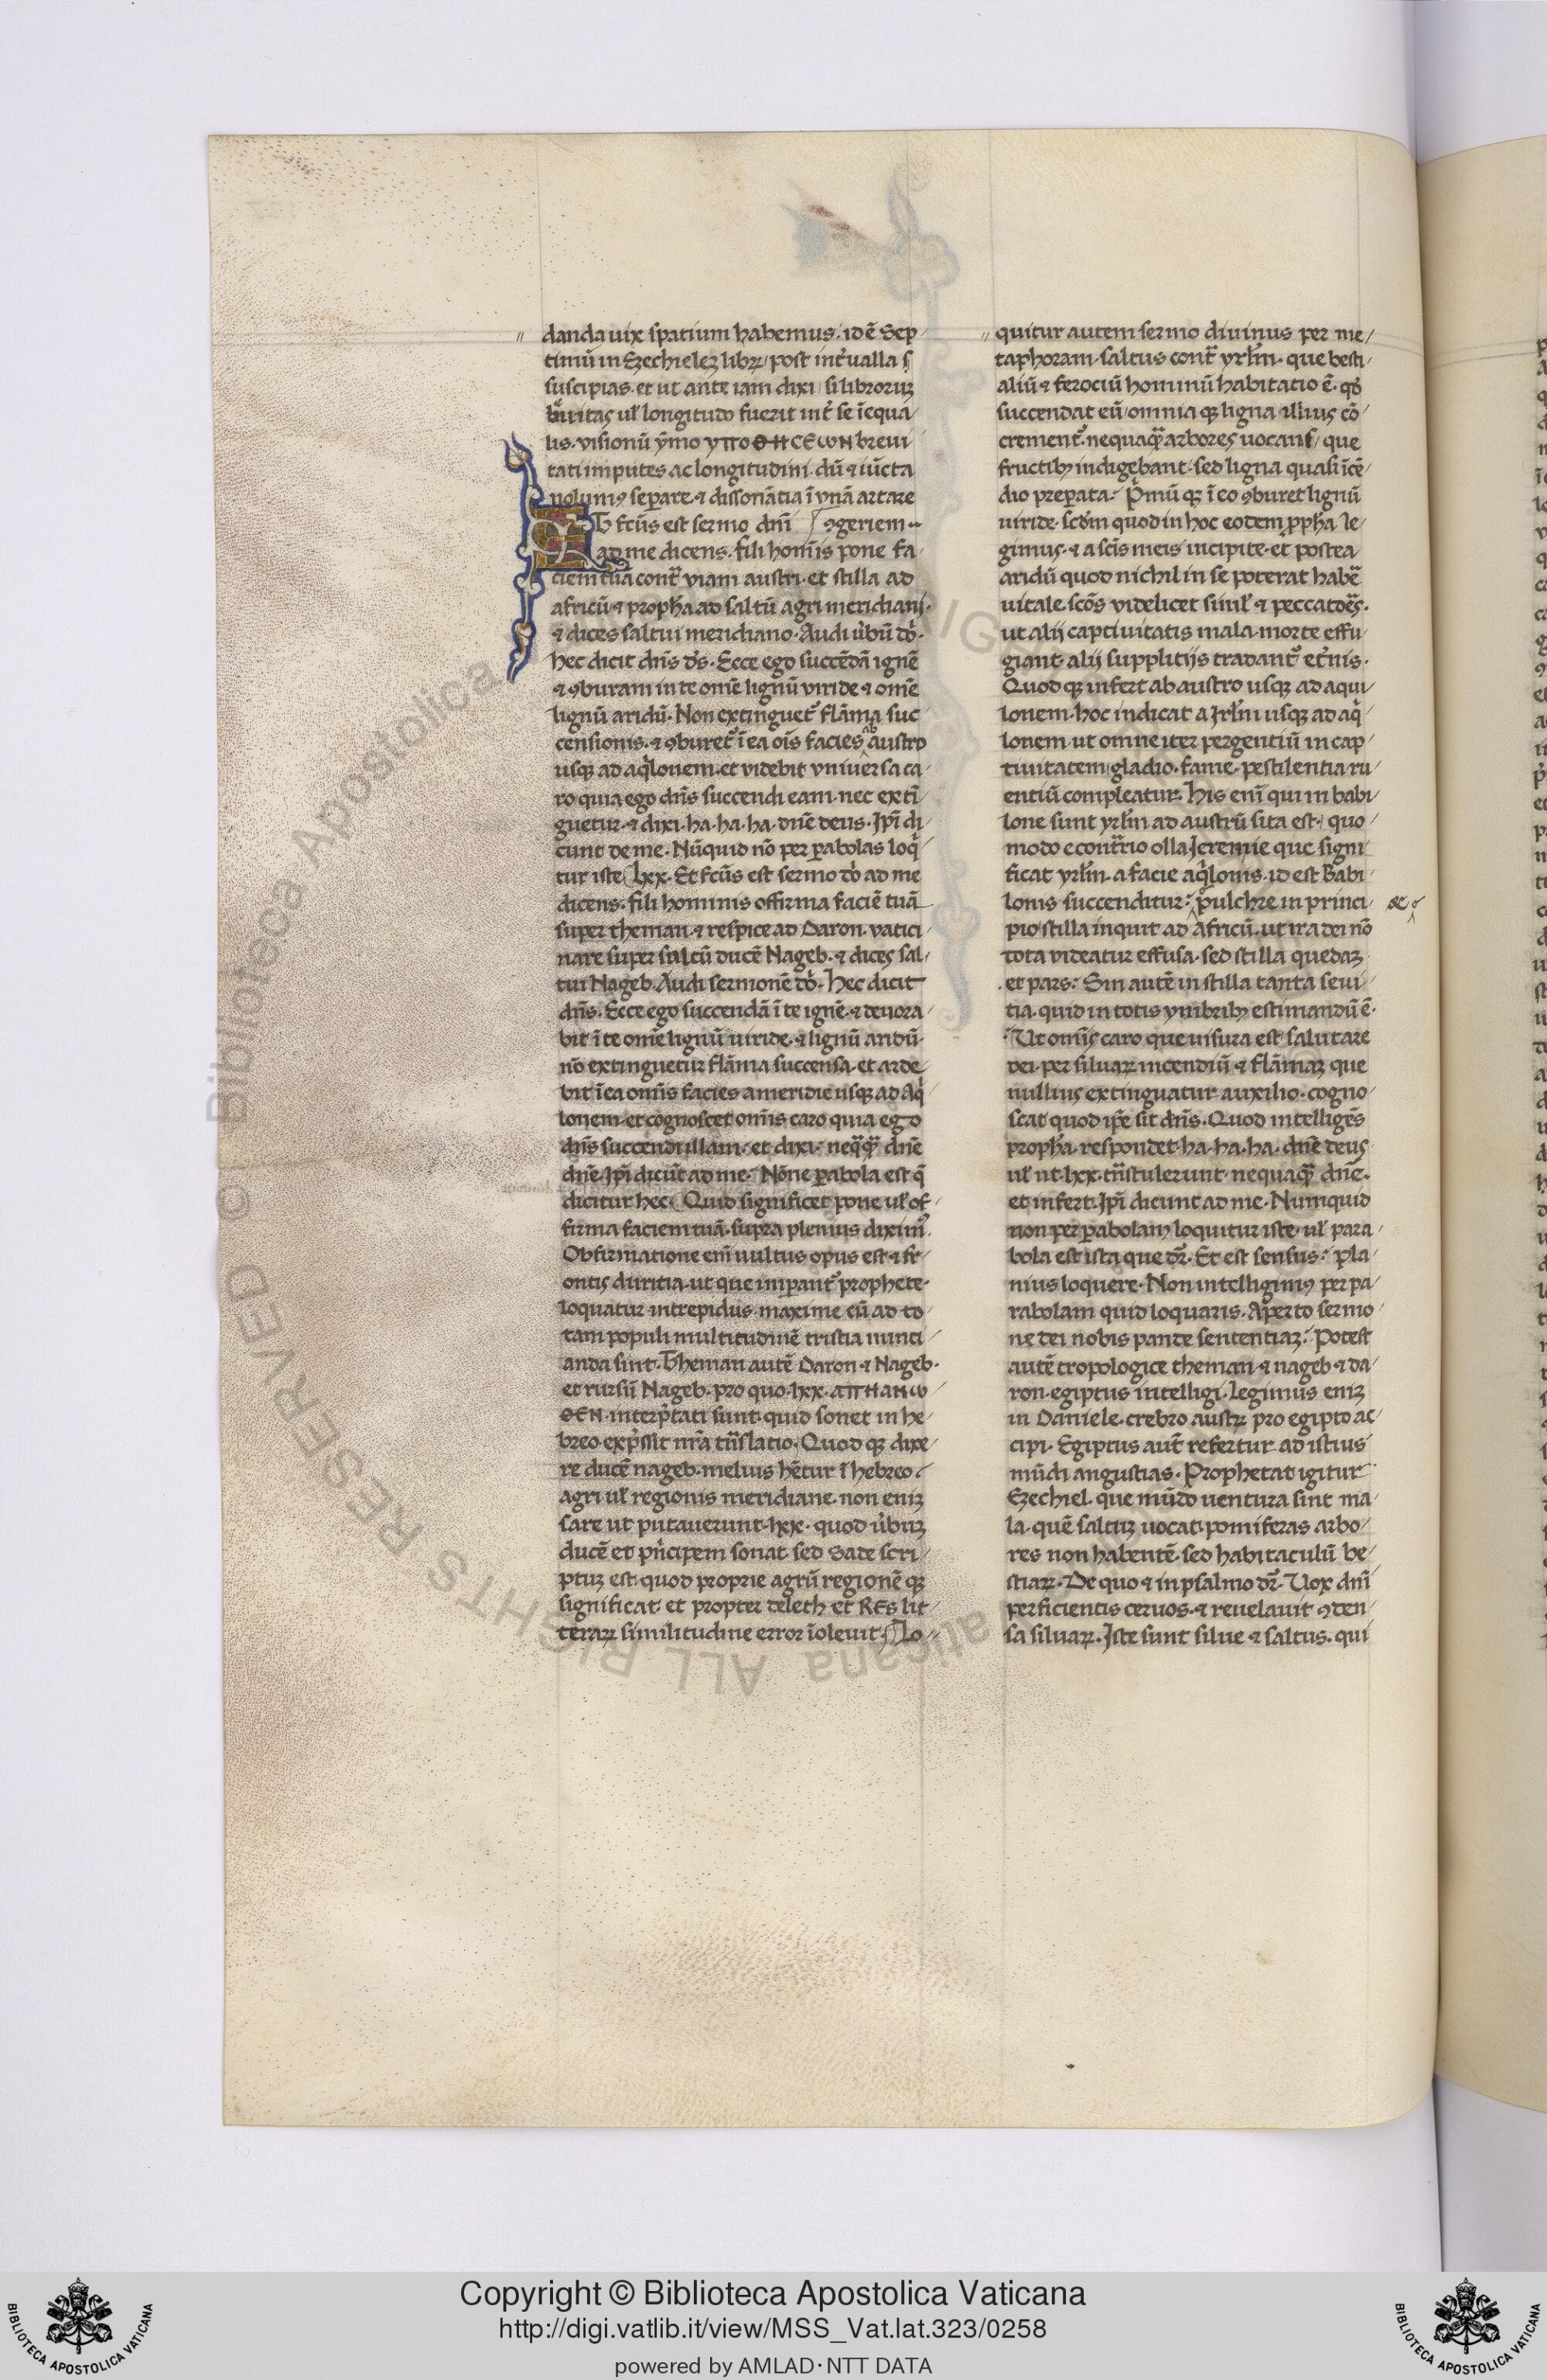 danda uix spatium habemus. idē Sep
timū in Ezechielez libꝝ/ post int̉ualla s
suscipias. et ut ante iam dixi si libroruz
b̉uitas ul̉ longitudo fuerit int̉ se īequa
lis. visionū ẏmo ỿποθηCEωN brevi
tati imputes ac longitudini. dū ⁊ iūcta
nolumꝰ seꝑare. ⁊ dissonātia ī ỿnā artare
ET fcūs est sermo dnī ꝯgeriem
ad me dicens. fili homīs pone fa
ciem tuā cont̄ viam austri. et stilla ad
africū ⁊ proph̉a ad saltū agri meridiani.
⁊ dices saltui meridiano. Audi ủbū dỏ.
hec dicit dn̄s d̉s. Ecce ego succēdā ignē
⁊ ꝯburam in te omē lignū viride ⁊ omē
lignū aridū. Non extinguet᷑ flāma suc
censionis. ⁊ ꝯburet᷑ ī ea ois̄ facies ab austro
usqꝫ ad aq̉lonem. et videbit vniuersa ca
ro quia ego dn̄s succendi eam. nec extī
guetur. ⁊ dixi. ha. ha. ha. dn̄e deus. Ip̄i di
cunt de me. Nūquid nō per ꝑabolas loq̉
tur iste lxx. Et fcūs est sermo dỏ ad me
dicens. fili hominis offirma faciē tuā
super theman. ⁊ respice ad Daron. vatici
nare super saltū ducē Nageb. ⁊ dices sal
tui Nageb. Audi sermonē dỏ. Hec dicit
dn̄s. Ecce ego succendā ī te ignē. ⁊ deuora
bit ī te om̄e lignū uiride. ⁊ lignū aridū.
nō extinguetur flāma succensa. et arde
bit ī ea om̄is facies a meridie usqꝫ ad Aq̉
lonem. et cognoscet om̄is caro quia ego
dn̄s succendi illam. et dixi. neq̄q̄ꝫ dn̄e
dn̄e. Ip̄i dicūt ad me. Nōne ꝑabola est q̄
dicitur hec Quid significet pone ul̉ of
firma faciem tuā. supra plenius diximꝰ.
Obfirmatione enī uultus opus est ⁊ fr
ontis duritia. ut que inꝑant᷑ prophete.
loquatur intrepidus. maxime cū ad to
tam populi multitudinē tristia nunci
anda sint. Theman autē Daron ⁊ Nageb.
et rursū Nageb. pro quo. lxx. απηλιω
θEN. interp̉tati sunt. quid sonet in he
breo. exp̉ssit nr̄a tn̄slatio. Quod qꝫ dixe
re ducē nageb. melius hētur ī hebreo.
agri ul̉ regionis meridiane. non eniz
sare ut putauerunt. lxx. quod ủbuz
ducē et pn̉cipem sonat. sed Sade scri
ptuz est. quod proprie agrū regionē qꝫ
significat. et propter deleth et RES lit
teraꝝ similitudine error īoleuit. Lo
quitur autem sermo diuinus per me
taphoram. saltus cont̄ yrl̄m. que besti
aliū ⁊ ferociū hominū habitatio ē. qd̉
succendat eū omnia qꝫ ligna illius cō
crement᷑. nequaq̄ꝫ arbores uocans/ que
fructibꝫ indigebant. sed ligna quasi īcē
dio preꝑata. P̉mū qꝫ ī eo ꝯburet lignū
uiride. scd̄m quod in hoc eodem ꝓph̉a le
gimus. ⁊ a scīs meis incipite. et postea
aridū quod nichil in se poterat habē
uitale. scōs videlicet siml̉ ⁊ peccatōēs.
ut alij captiuitatis mala. morte effu
giant. alij supplitijs tradant᷑ et̉nis.
Quod qꝫ infert ab austro usqꝫ ad aqui
lonem. hoc indicat a Irl̄m usqꝫ ad aq̉
lonem. ut omne iter pergentiū in cap
tiuitatem gladio. fame. pestilentia ru
entiū compleatur. His enī qui in babi
lone sunt yrl̄m ad austrū sita est. quo
modo econt̄rio olla Ieremie que signi
ficat yrl̄m. a facie aq̉lonis. id est Babi
lonis succenditur. Pulchre in princi
pio stilla inquit ad Africū. ut ira dei nō
tota videatur effusa. sed stilla quedaz
et pars. Sin autē in stilla tanta seui
tia. quid in totis ymbribꝫ estimandū ē.
Ut omīs caro que uisura est salutare
dei. per siluaꝝ incendiū ⁊ flāmaz que
nullius extinguatur auxilio. cogno
scat quod ip̄e sit dn̄s. Quod intelligēs
proph̉a. respondet. ha. ha. ha. dn̄e deus
ul̉ ut. lxx. tn̄stulerunt. nequaq̄ꝫ dn̄e.
et infert. Ip̄i dicunt ad me. Numquid
non per ꝑabolam loquitur iste. ul̉ para
bola est ista que dr̄. Et est sensus. pla
nius loquere. Non intelligimꝰ per pa
rabolam quid loquaris. Aperto sermo
ne dei nobis pande sententiaz. Potest
autē tropologice theman ⁊ nageb ⁊ da
ron. egiptus intelligi. Legimus eniz
in Daniele. crebro austꝝ pro egipto ac
cipi. Egiptus aut̄ refertur ad istius
mūdi angustias. Prophetat igitur
Ezechiel. que mūdo uentura sint ma
la. quē saltuz uocat. pomiferas arbo
res non habentē. sed habitaculū be
stiaꝝ. De quo ⁊ in psalmo dr̄. Vox dnī
perficientis ceruos. ⁊ reuelauit ꝯden
sa siluaꝝ. Iste sunt silue ⁊ saltus. qui
© Biblioteca Apostolica Vaticana ALL RIGHTS RESERVED
Copyright © Biblioteca Apostolica Vaticana
http://digi.vatlib.it/view/MSS_Vat.lat.323/0258
powered by AMLAD·NTT DATA
BIBLIOTECA APOSTOLICA VATICANA
BIBLIOTECA APOSTOLICA VATICANA